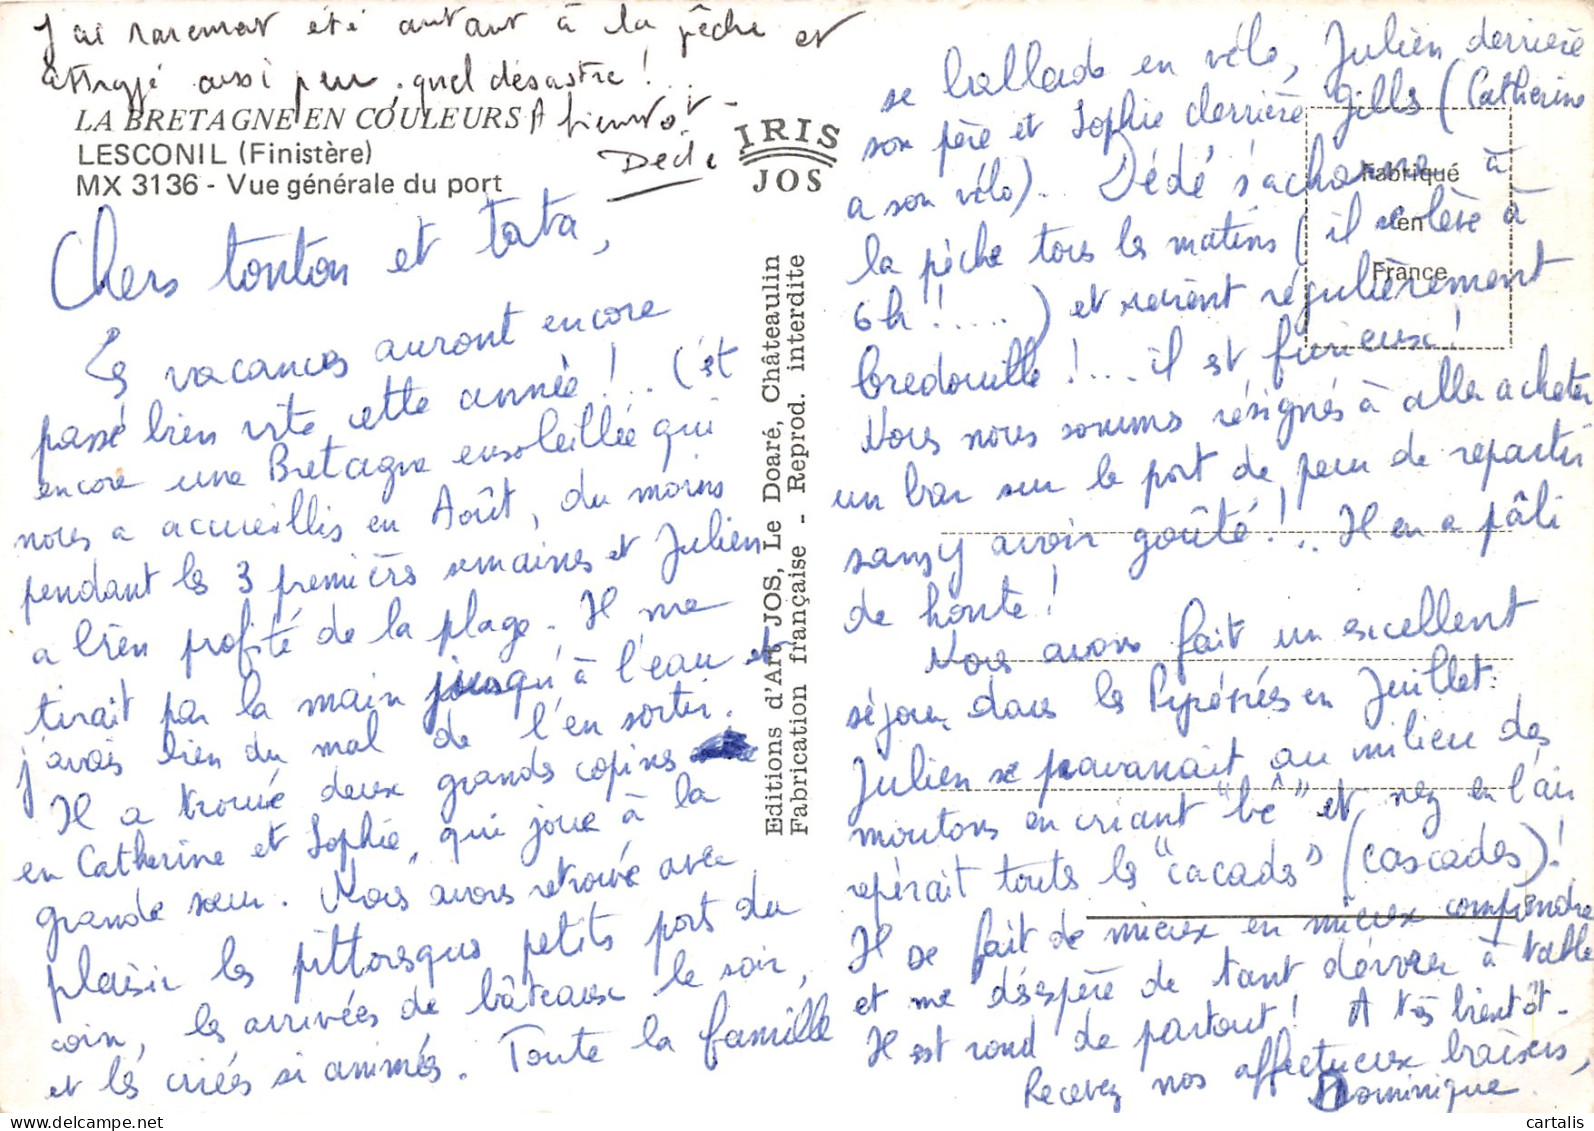 J'ai rarement été autant à la pêche et
attrapé aussi peu, quel désastre !
A bientôt
Dédé
LA BRETAGNE EN COULEURS
LESCONIL (Finistère)
MX 3136 - Vue générale du port
IRIS
JOS
Chers tonton et tata,
Les vacances auront encore
passé bien vite cette année !... C'est
encore une Bretagne ensoleillée qui
nous a accueillis en Août, du moins
pendant les 3 premières semaines et Julien
a bien profité de la plage. Il me
tirait par la main jusqu'à l'eau et
j'avais bien du mal de l'en sortir.
Il a trouvé deux grandes copines
en Catherine et Sophie, qui joue à la
grande sœur. Nous avons retrouvé avec
plaisir les pittoresques petits port du
coin, les arrivées de bâteaux le soir,
et les criées si animées. Toute la famille
Editions d'Art JOS, Le Doaré, Châteaulin
Fabrication française - Reprod. interdite
se ballade en vélo, Julien derrière
son père et Sophie derrière Gills (Catherine
a son vélo). Dédé s'acharne à
la pêche tous les matins (il se lève à
6h !.....) et revient régulièrement
bredouille !... il est furieux !
Nous nous sommes résignés à aller acheter
un bar sur le port de peur de repartir
sans y avoir goûté !... Il en a pâli
de honte !
Nous avons fait un excellent
séjour dans les Pyrénées en Juillet :
Julien se pavanait au milieu des
moutons en criant "bê" et nez en l'air
repérait toutes les "cacades" (cascades) !
Il se fait de mieux en mieux comprendre
et me désespère de tant dévorer à table
Il est rond de partout ! A très bientôt.
Recevez nos affectueux baisers,
Dominique.
Fabriqué
en
France